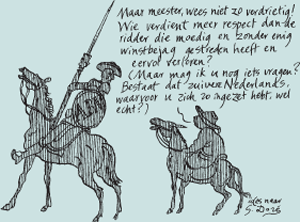 Maar meester, wees niet zo verdrietig!
Wie verdient meer respect dan de
ridder die moedig en zonder enig
winstbejag gestreden heeft en
eervol verloren?
(Maar mag ik u nog iets vragen?
Bestaat dat zuivere Nederlands,
waarvoor u zich zo ingezet hebt, wel
echt?)
naar
G. Doré